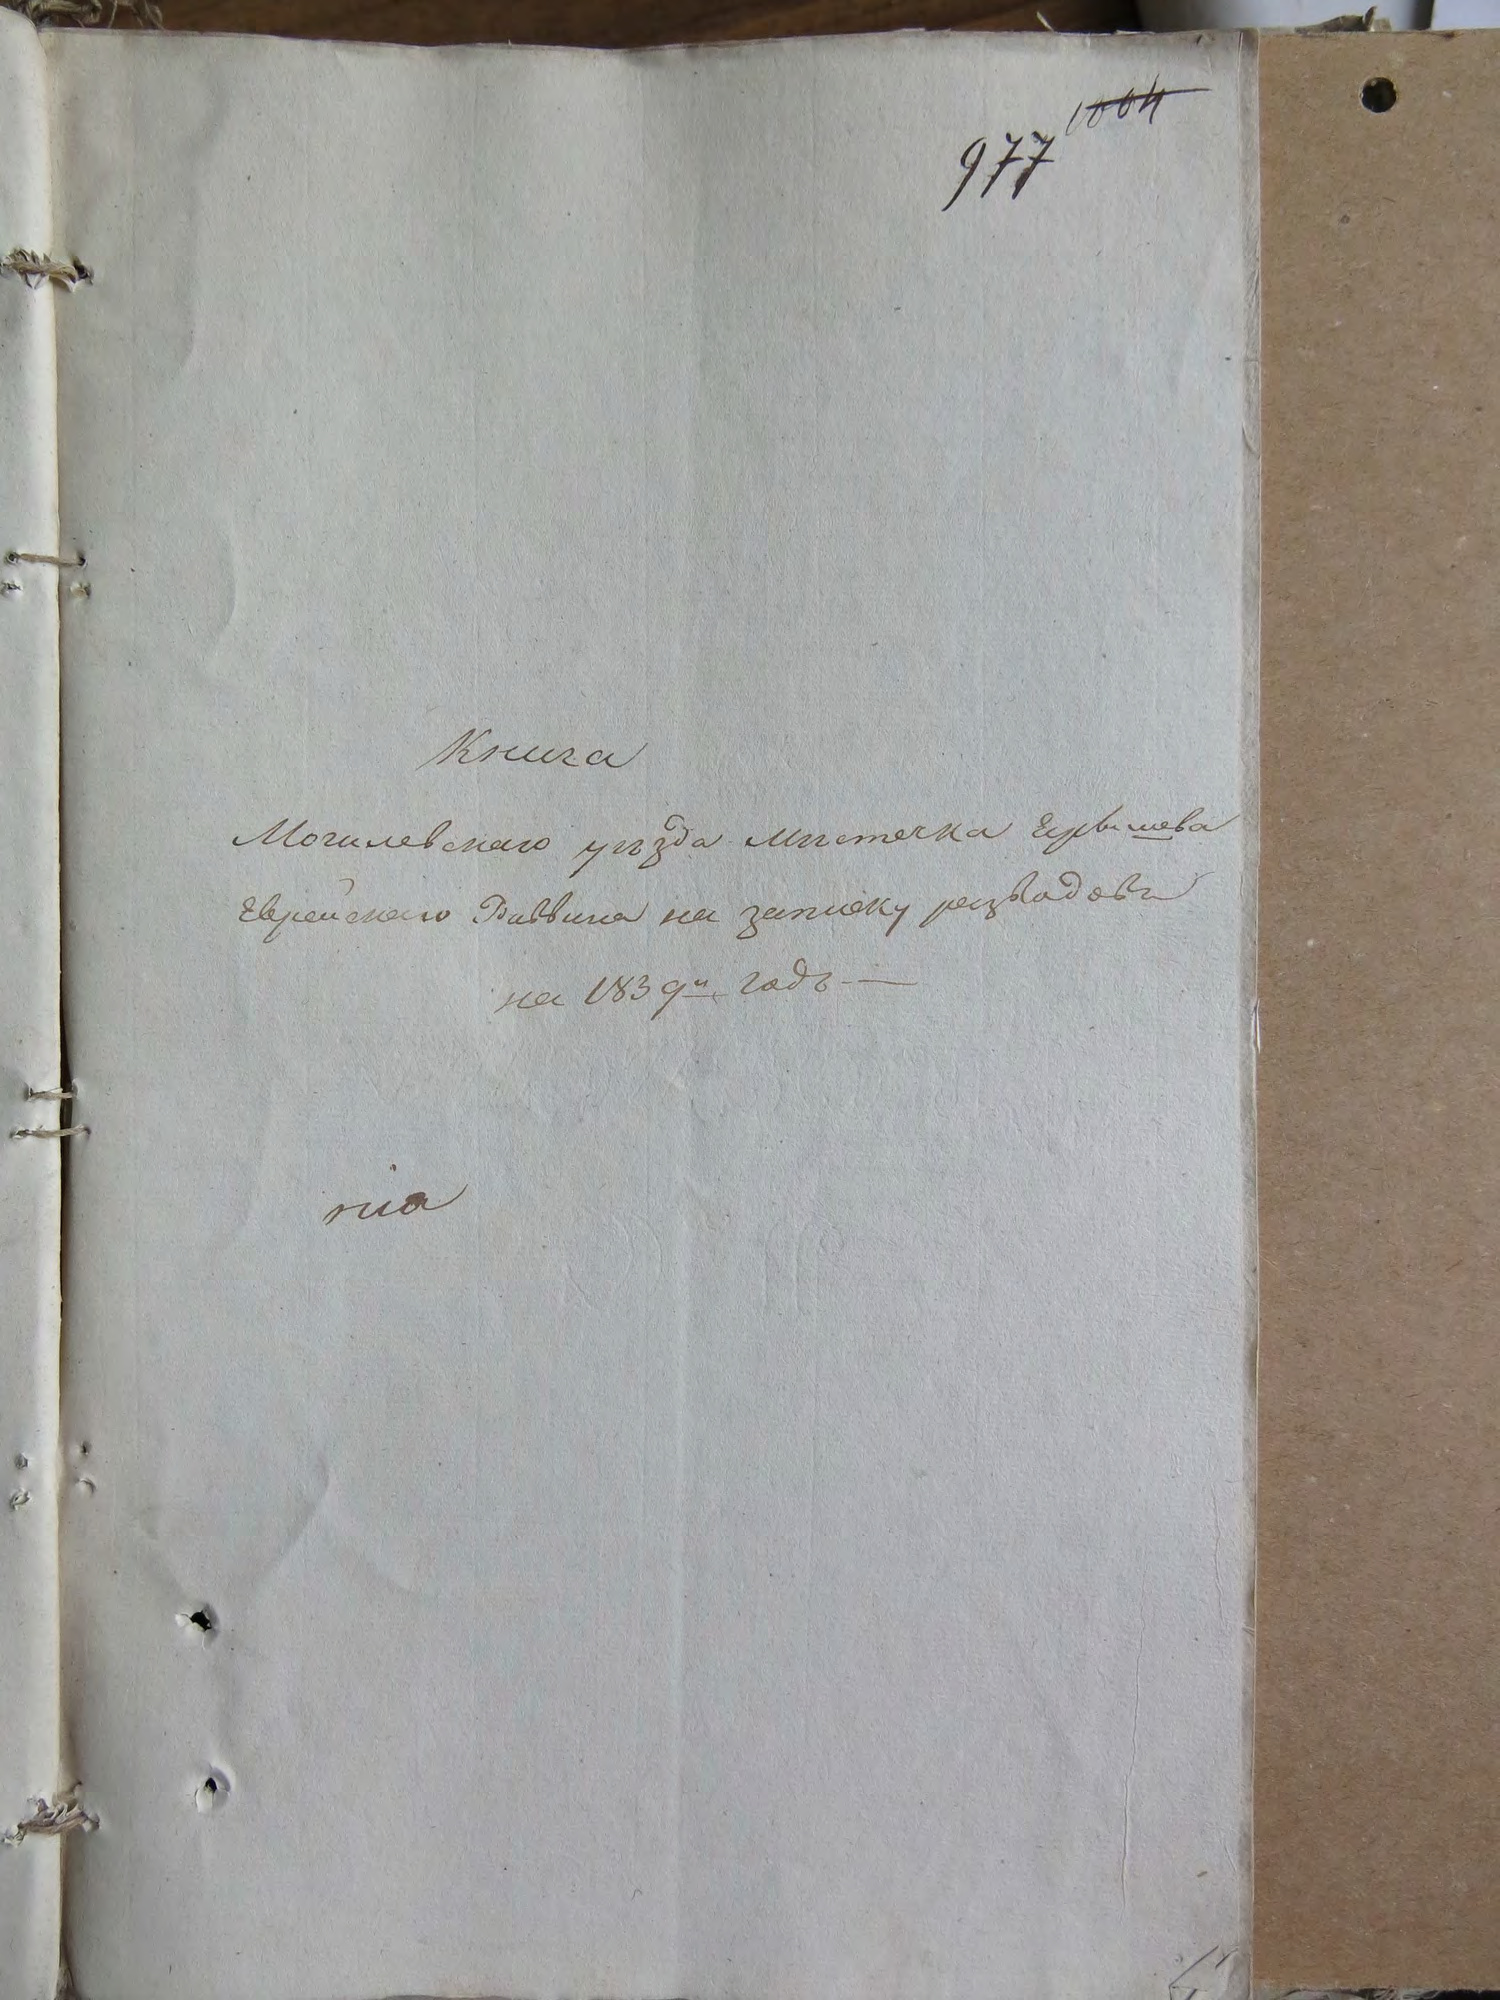 1004
977
Книга
Могилевскаго уѣзда мѣстечка
Еврейскаго Раввина на записку разводовъ
на 1839й годъ —